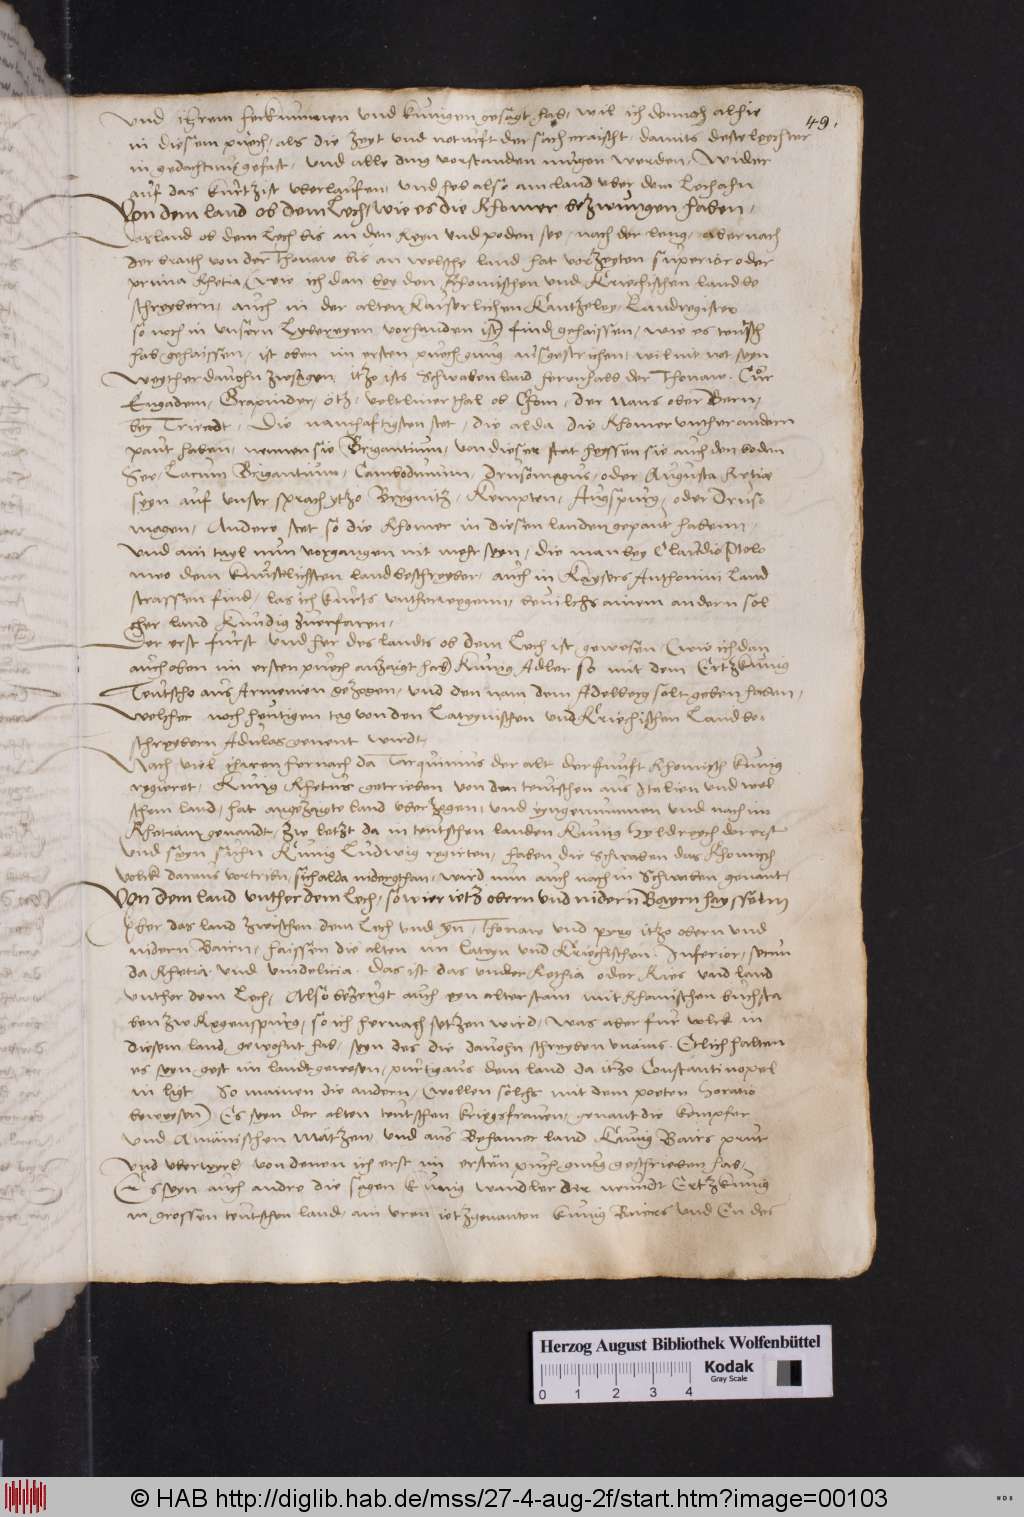 49.
und ihrem herkumen und kunigen gesagt hab, wil ich dennoch alhie
in diesem puech, als die zeyt und notturft der sach eraischt, damits dest leychter
in gedachtnus gefast, und alle ding verstanden mugen werden, wider
auf das kurtzist uberlaufen, und heb also am land ober dem Lech ahn
Von dem land ob dem Lech, wie es die Rhomer bezwungen haben,
das land ob dem Lech bis an den Reyn und poden see, nach der leng, aber nach
der braith von der Thonaw bis an welsche land hat vorzeyten superior oder
prima Rhetia (wie ich dan bey den Rhomischen und Kriechischen landbe
schreybern, auch in der alten kaiserlichen Kantzeley, Landregister
so noch in unsern Lybereyen vorhanden ist) find gehaissen, wie es teutsch
hab gehaissen, ist oben im ersten puech gnug ausgestrichen, wil nit not seyn
weyther davohn zusagen, itzo ists Schwabenland herenhalb der Thonaw, Cur
Engadein, Grapinder, Otz, veltliner thal ob Chom, der Nans ober Bern,
bey Triendt, Die namhaftigsten stet, die alda die Rhomer unther andern
paut haben, nennen sie Brigantium, von dieser stat heyssen sie auch den boden
See, Lacum Brigantium, Cambodunum, Drusomagus, oder Augusta Retiae
seyn auf unser sprach ytzo Bregnitz, Kempten, Augspurg, oder Druso
magen, Andere stet so die Rhomer in diesen landen gepaut habenn,
und ain tayl nun vergangen nit mehr seyn, die man bey Claudio Ptolo
meo dem kunstlichsten landbeschreyber, auch in Kaysers Anthonini land
strassen find, las ich kurts untherwegenn, bevilchs ainem andern sol
cher land kundig zuerfaren,
Der erst furst und her des landts ob dem Lech ist gewesen (wie ich dan
auch oben im ersten puech anzaigt hab) Kunig Adler so mit dem Ertzkunig
Teutscho aus Armenien gezogen, und den nam dem Adelberg solt geben haben,
welcher noch heutigen tag von den Lateynischen und Kriechischen Landbe
schreybern Adulas genent wirdt,
Nach viel iharen hernach da Tarquinius der alt der funft Rhomisch kunig
regieret, Kunig Rhetus getrieben von den teutschen aus Italien und wel
schem land, hat angezaigte land uberzogen, und eyngenummen und nach im
Rhetiam genandt, zu letzt da in teutschen landen kunig Hyldreych der erst
und seyn suhn Kunig Ludwig regirten, haben die Schwaben das Rhomisch
volck daraus vertriben, sich alda nidergthan, wird nun auch nach in Schwaben genant,
Von dem land unther dem Lech, so wier ietz obern und nidern Bayrn hayssenn
Aber das land zwischen dem Lech und Yn, Thonaw und pirg itzo obern und
nidern Bairn, haissen die alten im lateyn und Kriechischen, Inferior, secun
da Rhetia, und vindelicia, Das ist das under Rethia oder Ries und land
unther dem Lech, Also bezeugt auch eyn alter stain mit Rhomischen buchsta
ben zu Regenspurg, so ich hernach setzen wird, was aber fur volck in
diesem land gewohnt hab, seyn des die davohn schreyben unains. Etlich halten
es seyn gest im landt gewesen, purtig aus dem land da itzo Constantinopel
in ligt. So mainen die andern, (wollen solchs mit dem poeten Horatio
beweysen) Es seyn der alten teutschen kriegsfrauen, genant die kempfer
und Amanischen Matzen, und aus Behamer land Kunig Bairs prut
und uberweyb von denen ich erst im ersten puech gnug geschrieben hab,
Es seyn auch andre die sagen kunig wandler der neundt Ertzkunig
in grossen teutschen land, am uren ietzgenanten kunig Baiers und En des
Herzog August Bibliothek Wolfenbüttel
Kodak
Gray Scale
0 1 2 3 4
© HAB http://diglib.hab.de/mss/27-4-aug-2f/start.htm?image=00103